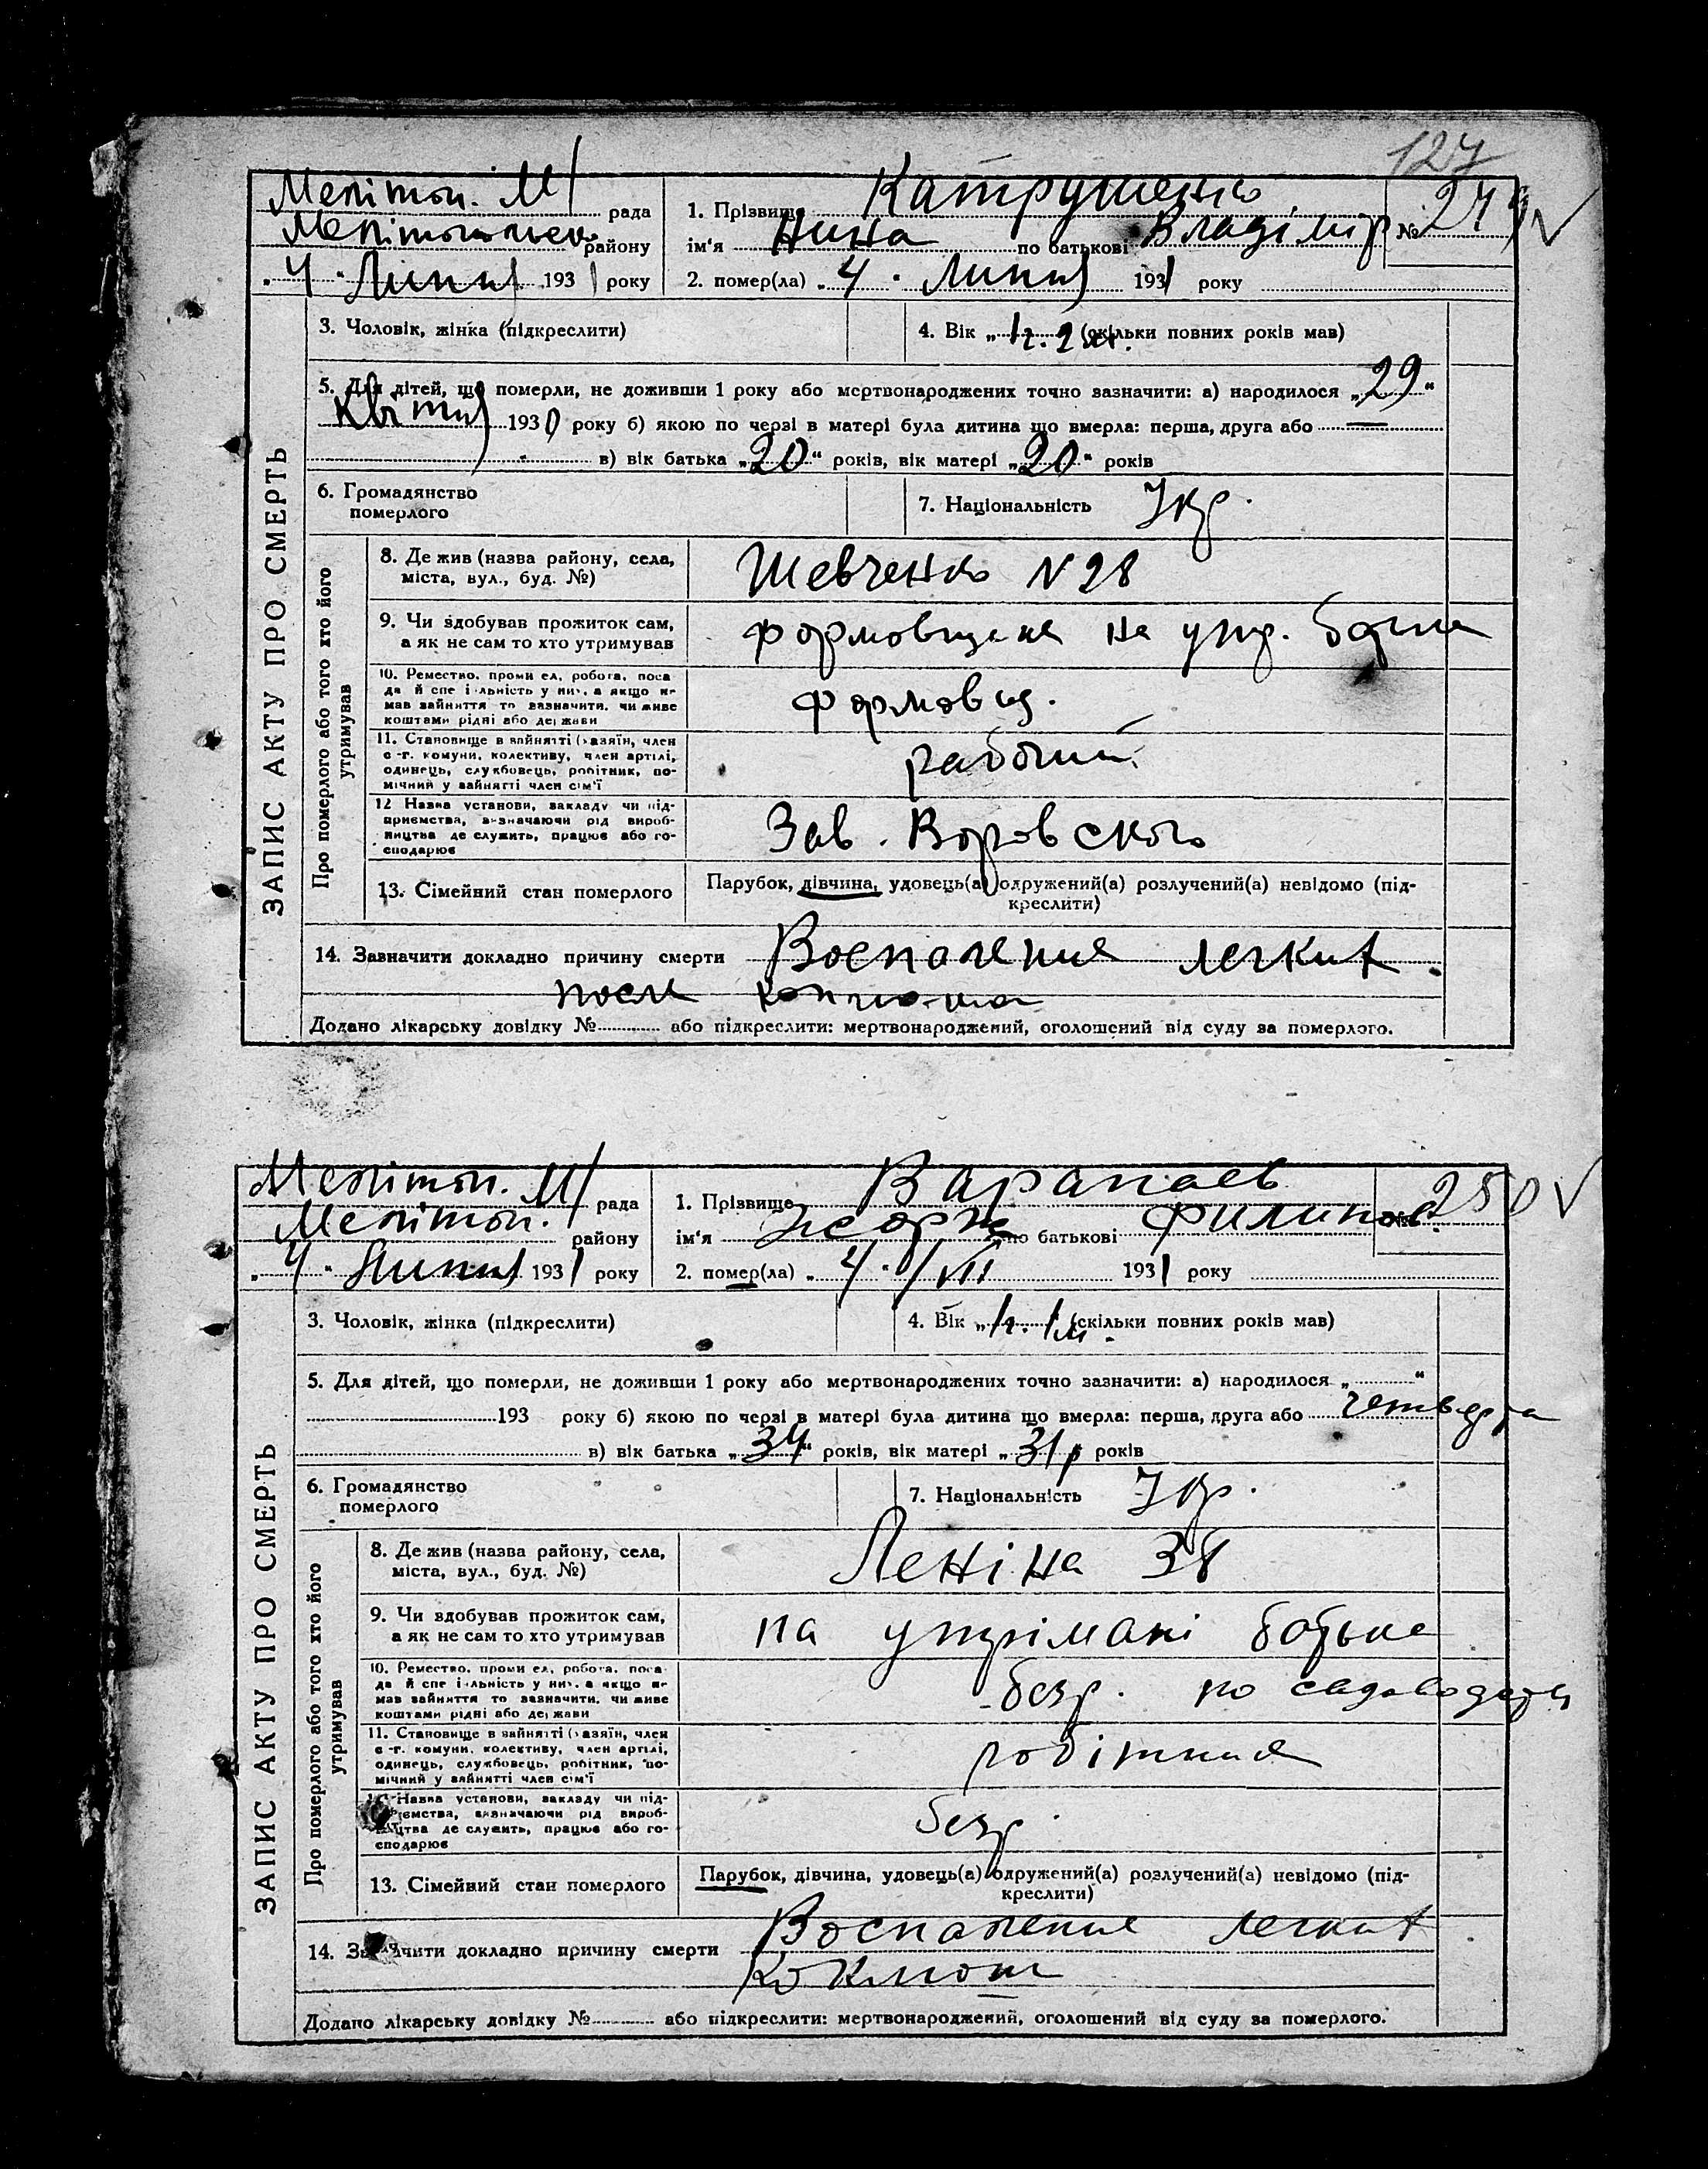 127
Мелітоп. М/ рада
Мелітопольск району
„4" Липня 1931 року
1. Прізвище Катрушенко
ім'я Нина по батькові Владімір № 249
2. помер(ла) „4" Липня 1931 року
3. Чоловік, жінка (підкреслити)
4. Вік „1г. 2 м. (скільки повних років мав)
5. Для дітей, що померли, не доживши 1 року або мертвонароджених точно зазначити: а) народилося „29"
Квітня 1930 року б) якою по черзі в матері була дитина що вмерла: перша, друга або —
в) вік батька „20" років, вік матері „20" років
6. Громадянство
померлого
7. Національність Укр.
ЗАПИС АКТУ ПРО СМЕРТЬ
Про померлого або того хто його
утримував
8. Де жив (назва району, села,
міста, вул., буд. №)
Шевченко N 28
9. Чи здобував прожиток сам,
а як не сам то хто утримував
формовщика на утр.
10. Ремество, промисел, робота, поса
да й спеціяльність у ним, а якщо не
мав зайняття то зазначити, чи живе
коштами рідні або держави
формовщ.
11. Становище в зайнятті (хазяїн, член
с-г. комуни, колективу, член артілі,
одинець, службовець, робітник, по-
мічний у зайнятті член сім'ї
рабочий
12 Назва установи, закладу чи під-
приємства, визначаючи рід вироб-
ництва де служить, працює або го-
сподарює
Зав. Воровского
13. Сімейний стан померлого
Парубок, дівчина, удовець(а) одружений(а) розлучений(а) невідомо (під-
креслити)
14. Зазначити докладно причину смерти Воспаление легких.
после
Додано лікарську довідку № або підкреслити: мертвонароджений, оголошений від суду за померлого.
Мелітоп. М/ рада
Мелітоп. району
„4" Липня 1931 року
1. Прізвище Варапаев
ім'я Жорж по батькові Филипов. № 250
2. помер(ла) „4" /VII 1931 року
3. Чоловік, жінка (підкреслити)
4. Вік „1г. 1м. (скільки повних років мав)
5. Для дітей, що померли, не доживши 1 року або мертвонароджених точно зазначити: а) народилося „ "
193 року б) якою по черзі в матері була дитина що вмерла: перша, друга або четверта
в) вік батька „34" років, вік матері „31р" років
6. Громадянство
померлого
7. Національність Укр.
ЗАПИС АКТУ ПРО СМЕРТЬ
Про померлого або того хто його
утримував
8. Де жив (назва району, села,
міста, вул., буд. №)
Леніна 38
9. Чи здобував прожиток сам,
а як не сам то хто утримував
на утрімані батька
10. Ремество, промисел, робота, поса
да й спеціяльність у ним, а якщо не
мав зайняття то зазначити, чи живе
коштами рідні або держави
безр. по
11. Становище в зайнятті (хазяїн, член
с-г. комуни, колективу, член артілі,
одинець, службовець, робітник, по-
мічний у зайнятті член сім'ї
робітник
12 Назва установи, закладу чи під-
приємства, визначаючи рід вироб-
ництва де служить, працює або го-
сподарює
безр.
13. Сімейний стан померлого
Парубок, дівчина, удовець(а) одружений(а) розлучений(а) невідомо (під-
креслити)
14. Зазначити докладно причину смерти Воспаление легких
Коклюш
Додано лікарську довідку № або підкреслити: мертвонароджений, оголошений від суду за померлого.